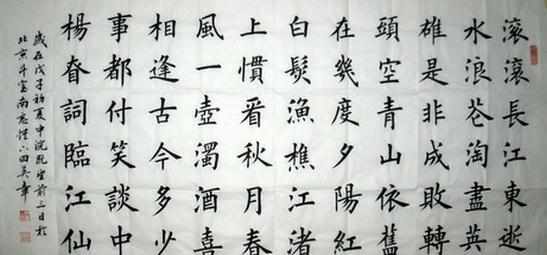 滾滾長江東逝
水浪花淘盡英
雄是非成敗轉
頭空青山依舊
在幾度夕陽紅
白髮漁樵江渚
上慣看秋月春
風一壺濁酒喜
相逢古今多少
事都付笑談中
楊眘詞臨江仙
歲在戊子初夏中浣既望前三日於
北京斗室南窓燈下田英章